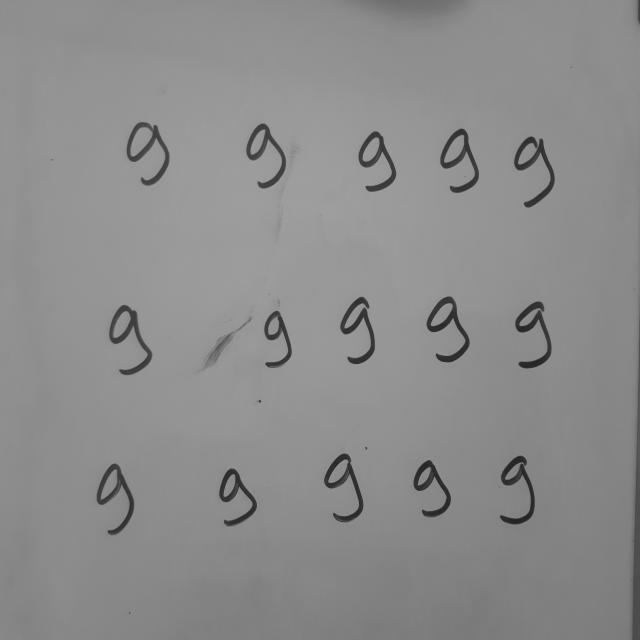 9 9 9 9 9
9 9 9 9 9
9 9 9 9 9